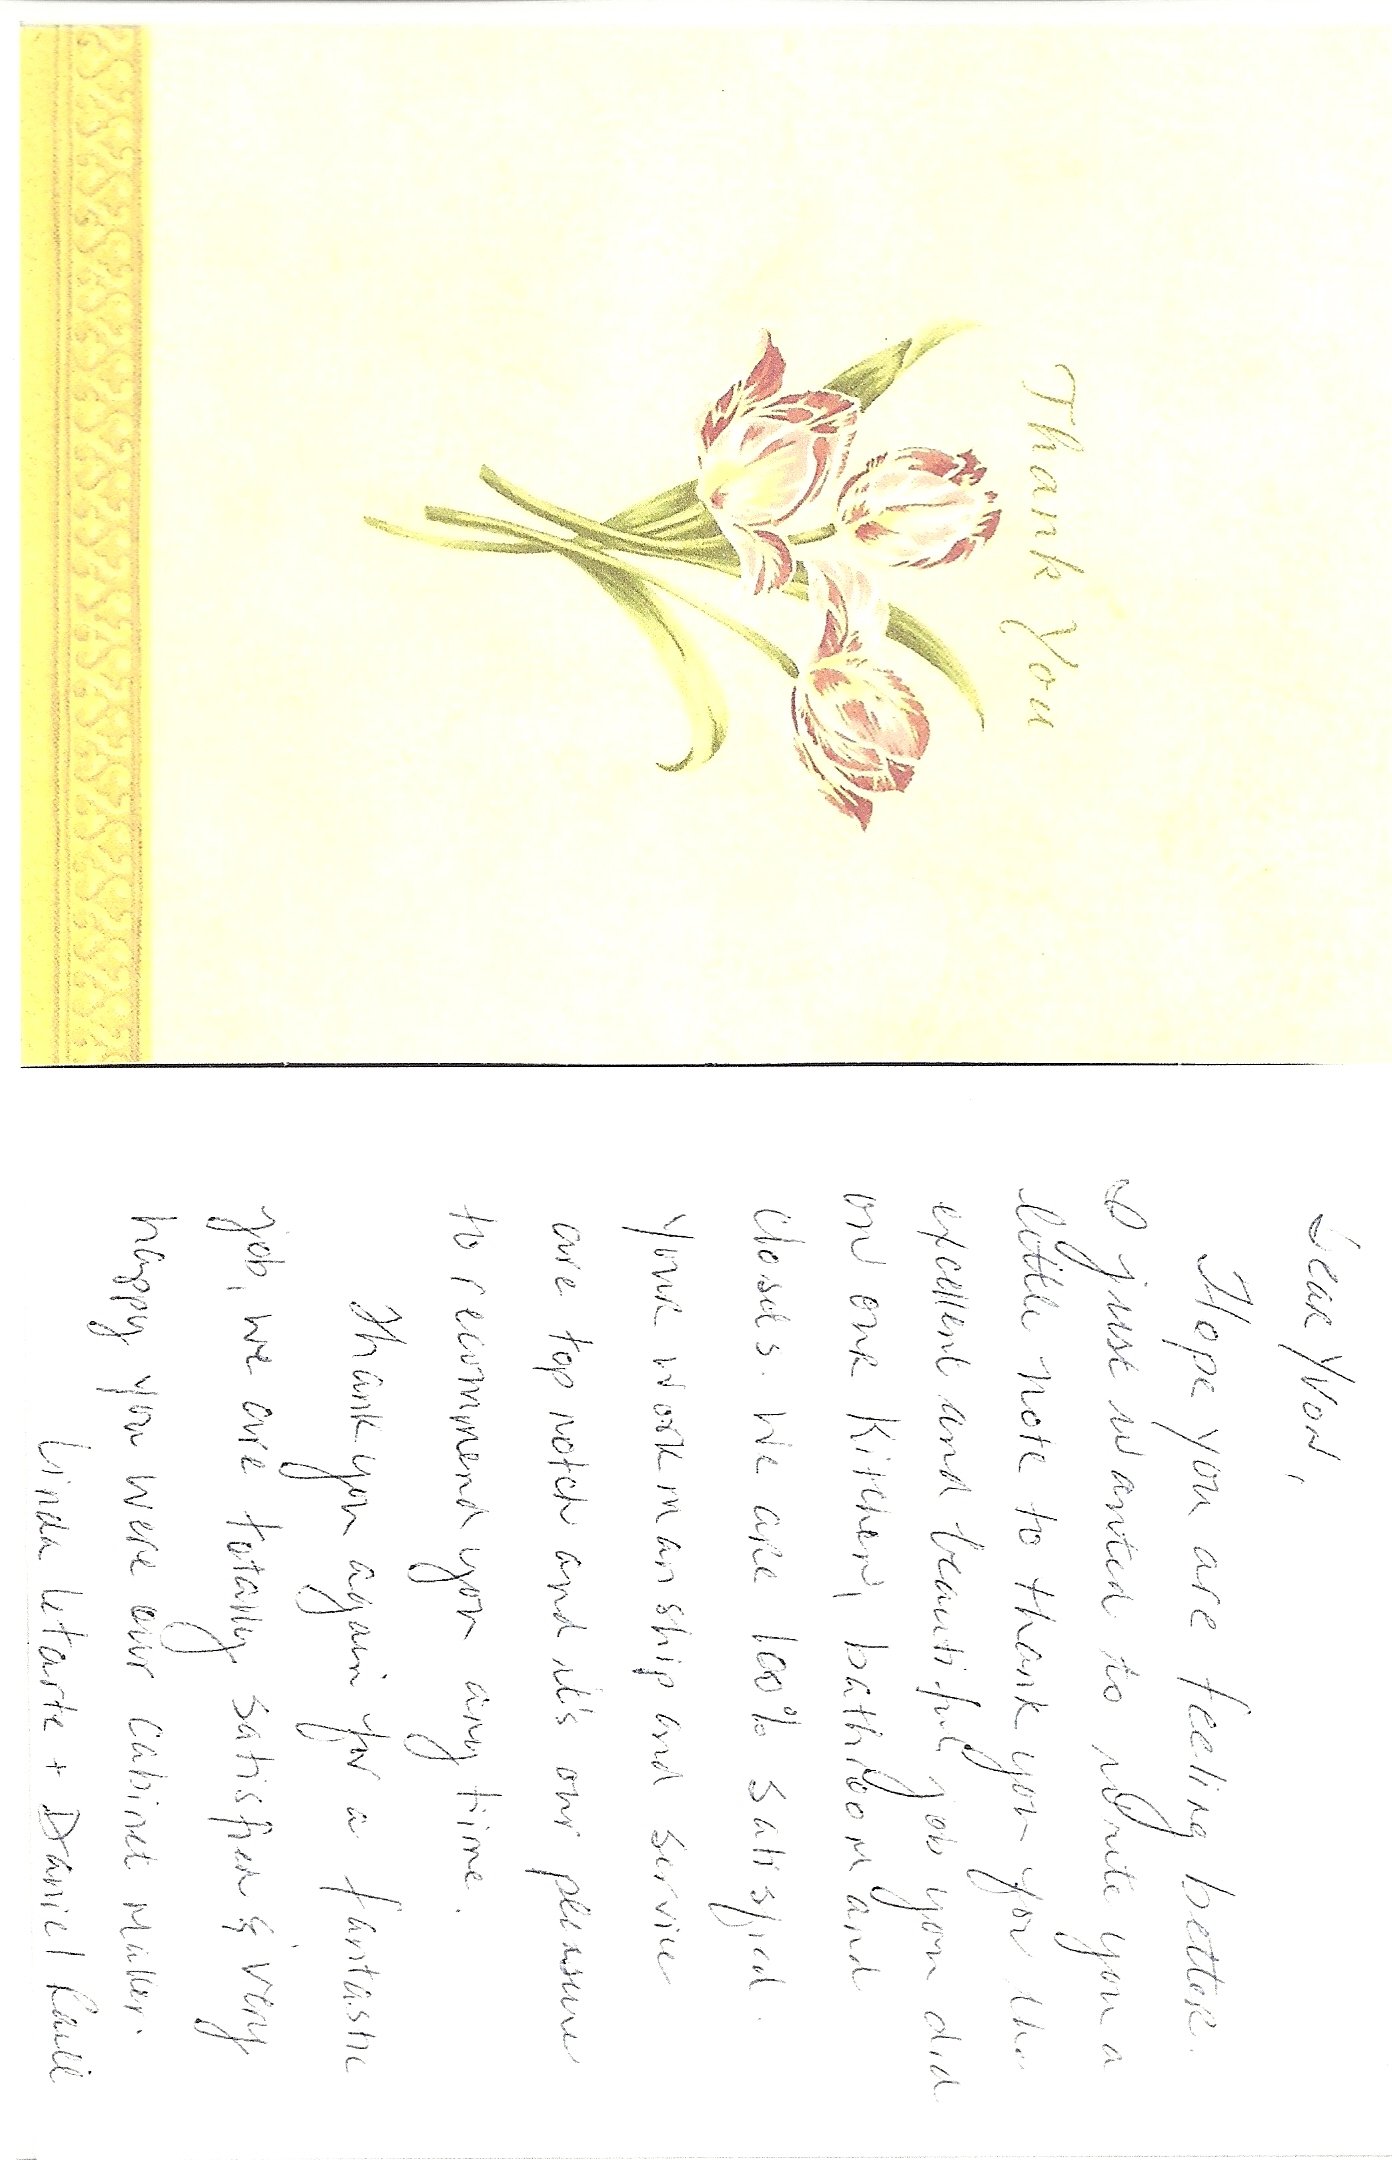 Thank You
Dear Yvon,
Hope you are feeling better.
I just wanted to write you a
little note to thank you for the
excellent and beautiful job you did
on our kitchen, bathroom and
closets. We are 100% satisfied.
Your workmanship and service
are top notch and it's our pleasure
to recommend you any time.
Thank you again for a fantastic
job, we are totally satisfied & very
happy you were our cabinet maker.
Linda Letarte + Daniel